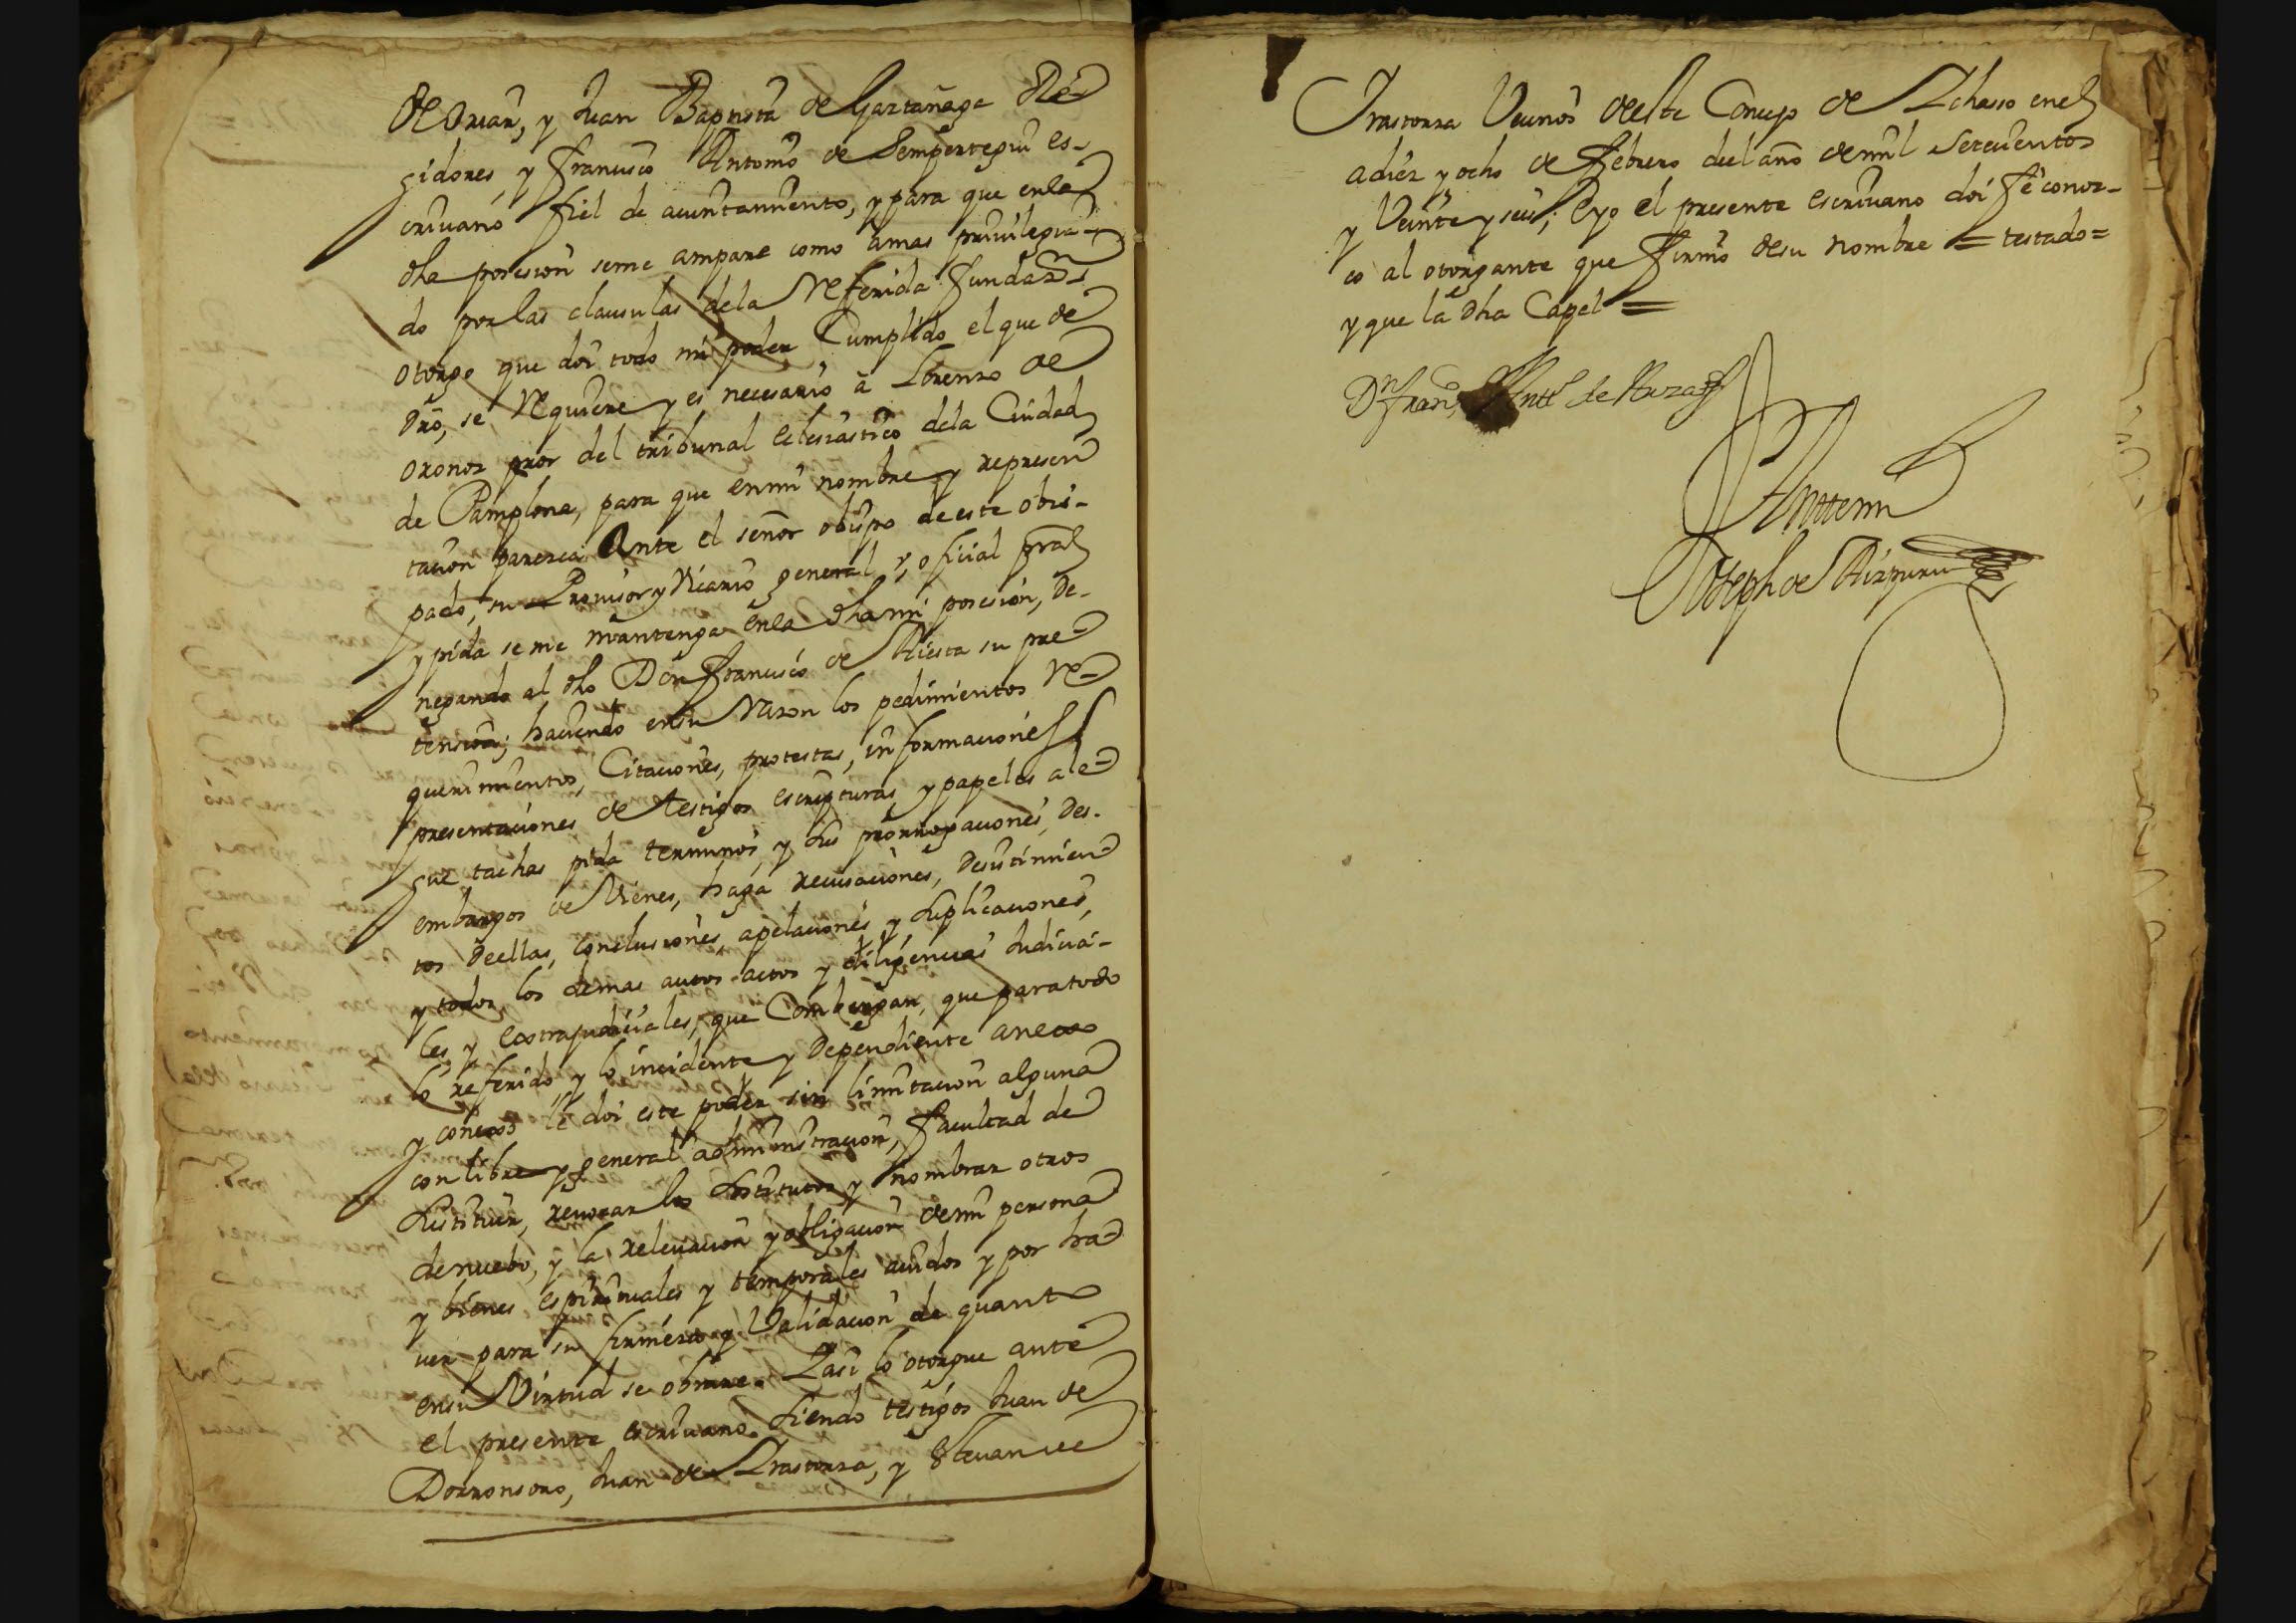 de Oriar, y Juan Baptista de Gaztañaga Re-
gidores, y Francisco Antonio de Sempertegui es-
crivano fiel de aiuntamiento, y para que en la
dha posesion se me ampare como a mas privilegia-
do por las clausulas de la referida fundazon
otorgo que doi todo mi poder Cumplido el que de
dro, se requiere y es necesario a Lorenzo de
Oronoz pror del tribunal eclesiastico de la Ciudad
de Pamplona, para que en mi nombre y represen
tacion paresca Ante el señor obispo de este obis-
pado, su Provisor y Vicario general y, oficial pral
y pida se me mantenga en la dha mi posesion, de-
negando al dho Don Francisco de Aiesta su pre
tension; haciendo en su razon los pedimientos re
querimientos, Citaciones, protestas, informaciones
presentaciones de testigos escripturas y papeles ale
gue tachas pida terminos, y sus prorrogaciones, des-
embargos de Vienes, haga recusaciones, desistimien
tos de ellas, conclusiones, apelaciones, y suplicaciones,
y todos los demas autos actos y diligencias Judicia-
les, y extrajudiciales, que Combengan, que para todo
lo referido, y lo incidente y dependiente anexo
y conexo le doi este poder sin limitacion alguna
con libre y general administracion, facultad de
sustituir, revocar los sostitutos y nombrar otros
de nuebo, y la relevacion y obligacion de mi persona
y bienes espirituales y temporales avidos y por ha
ver para su firmeza y Validacion de quanto
en su Virtud se obrare. Y asi lo otorgue ante
el presente escrivano siendo testigos Juan de
Dorronsoro, Juan de Irastorza, y Estevan de
Irastorza Vecinos de este Concejo de Ichasso en el
a diez y ocho de Febrero del año de mil Setecientos
y Veinte y seis; e yo el presente escrivano doi fe conoz-
co al otorgante que firmo de su nombre = testado =
y que la dha Capel =
Dn Franco Antt de
Antte mi
Joseph de Aizpuru